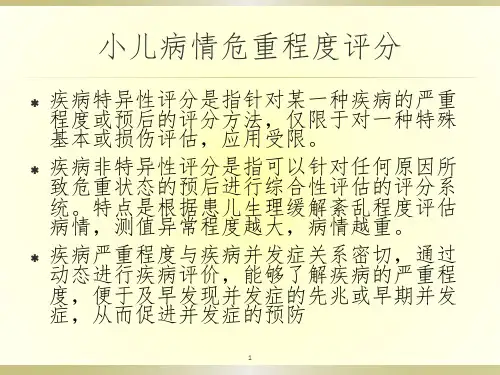 小儿病情危重程度评分
疾病特异性评分是指针对某一种疾病的严重
程度或预后的评分方法，仅限于对一种特殊
基本或损伤评估，应用受限。
疾病非特异性评分是指可以针对任何原因所
致危重状态的预后进行综合性评估的评分系
统。特点是根据患儿生理缓解紊乱程度评估
病情，测值异常程度越大，病情越重。
疾病严重程度与疾病并发症关系密切，通过
动态进行疾病评价，能够了解疾病的严重程
度，便于及早发现并发症的先兆或早期并发
症，从而促进并发症的预防
1